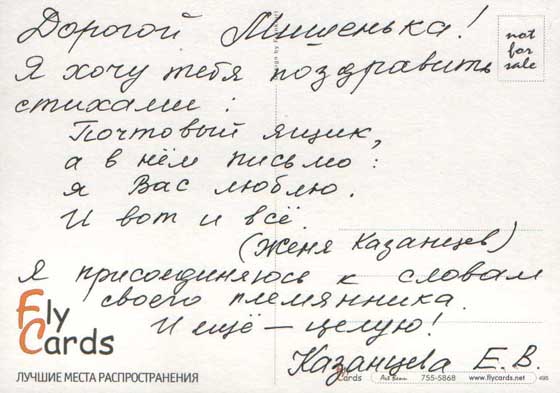 Дорогой Мишенька!
not
for
sale
Я хочу тебя поздравить
стихами:
Почтовый ящик,
а в нём письмо:
я Вас люблю.
И вот и всё.
(Женя Казанцев)
Я присоединяюсь к словам
своего племянника.
И ещё — целую!
Казанцева Е. В.
Fly
Cards
ЛУЧШИЕ МЕСТА РАСПРОСТРАНЕНИЯ
Cards
755-5868
www.flycards.net
495